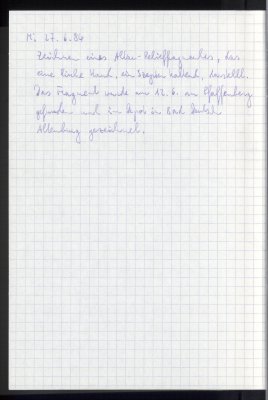 Mi 27.6.84
Zeichnen eines Altar-Relieffragmentes, das
eine linke Hand, ein Szepter haltend, darstellt.
Das Fragment wurde am 12.6. am Pfaffenberg
gefunden und im Depot in Bad Deutsch
Altenburg gezeichnet.